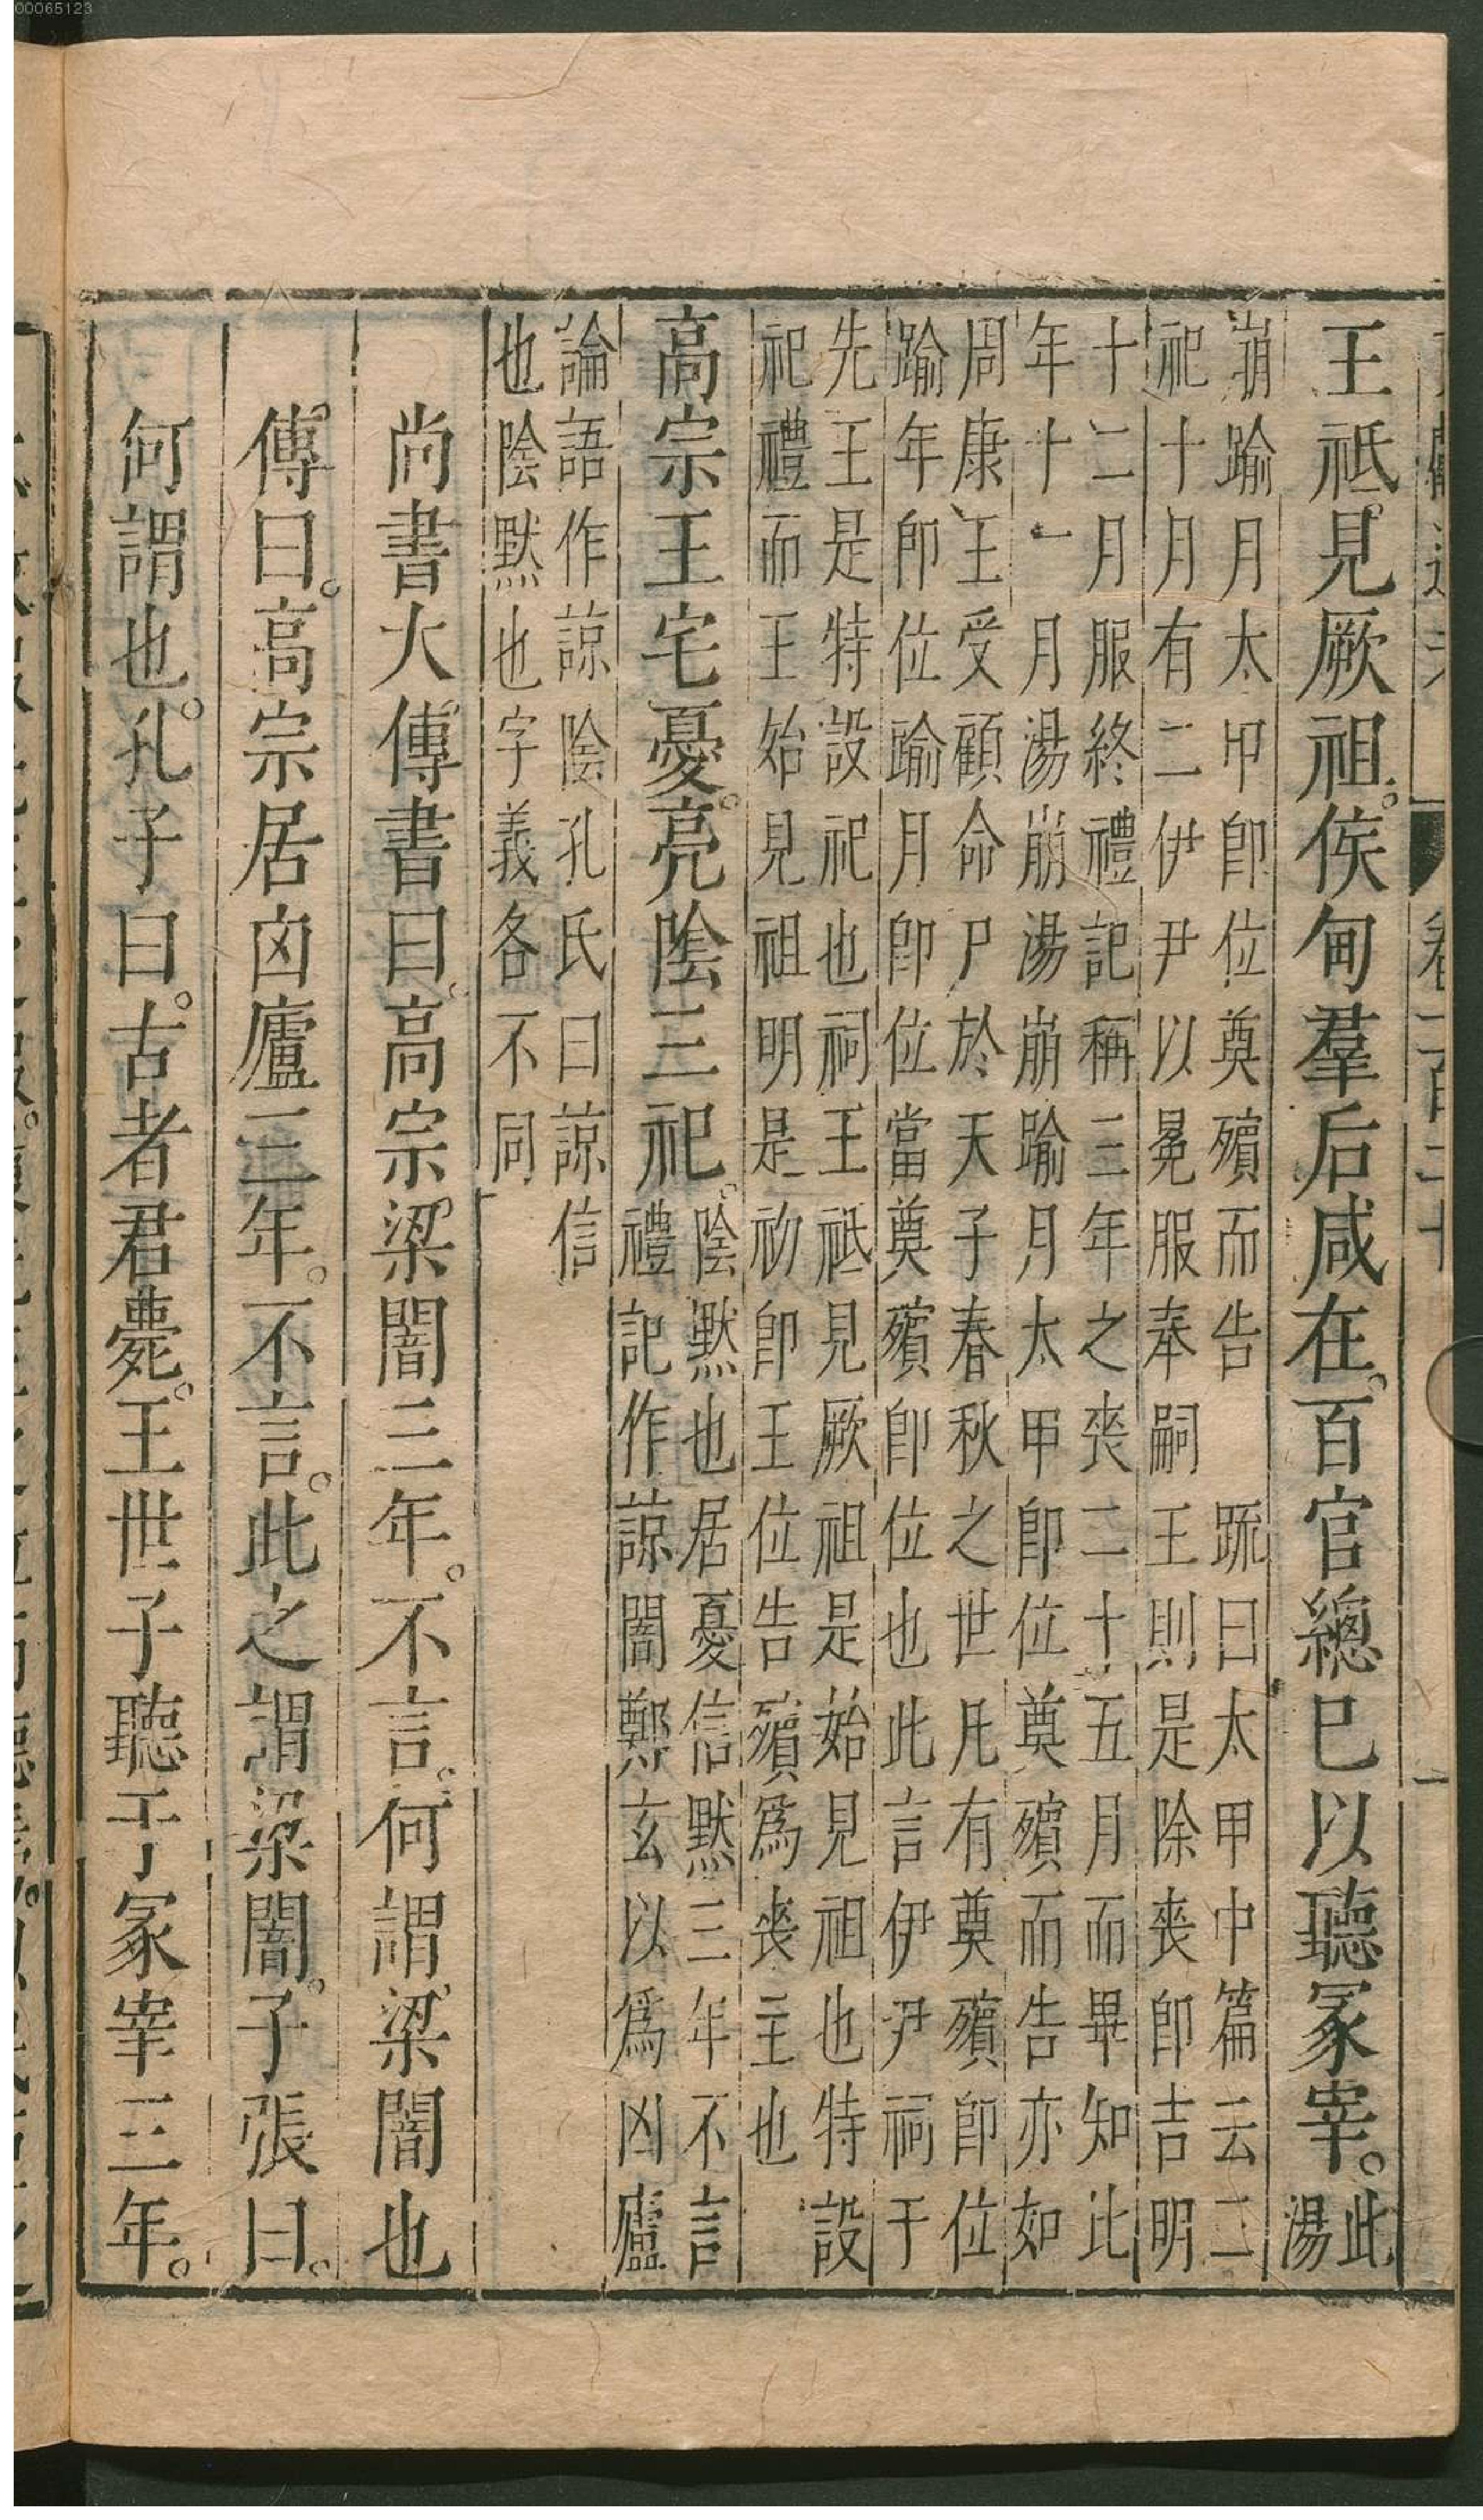 00065123
王祗見厥祖。侯甸羣后咸在。百官緫巳以聽冢宰。此
湯
崩踰月太甲卽位奠殯而告　疏曰太甲中篇云二
祀十月有二伊尹以冕服奉嗣王則是除喪卽吉明
十二月服終禮記稱三年之喪二十五月而畢知此
年十一月湯崩湯崩踰月太甲卽位奠殯而告亦如
周康王受顧命尸於天子春秋之世凡有奠殯卽位
踰年卽位踰月卽位當奠殯卽位也此言伊尹祠于
先王是特設祀也祠王祗見厥祖是始見祖也特設
祀禮而王始見祖明是初卽王位告殯爲喪主也
高宗王宅憂。亮陰三祀。陰默也居憂信默三年不言
禮記作諒闇鄭玄以爲凶廬
論語作諒陰孔氏曰諒信
也陰默也字義各不同
尚書大傳書曰。高宗梁闇三年。不言。何謂梁闇也
傳曰。高宗居凶廬三年。不言。此之謂梁闇。子張曰。
何謂也。孔子曰。古者君薨。王世子聽于冢宰三年。